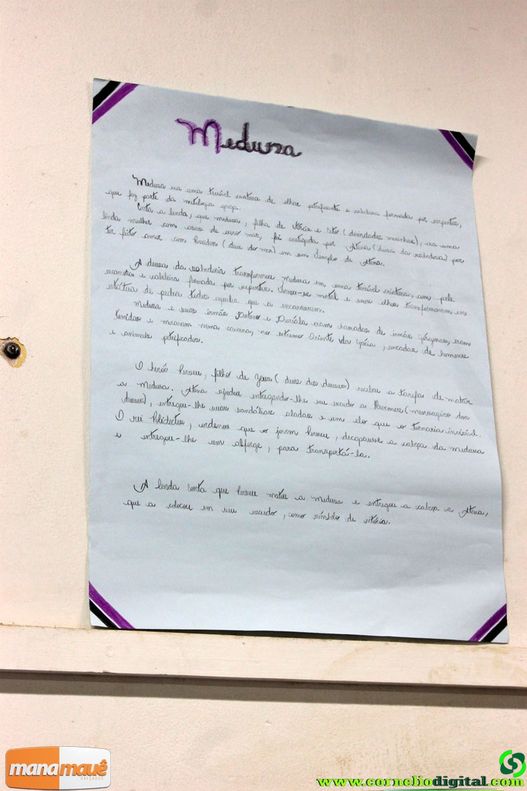 Medusa
Medusa era uma terrível criatura de olhar petrificante e cabeleira formada por serpentes,
que fez parte da mitologia grega.
Conta a lenda, que medusa, filha de e (divindades marinhas), era uma
linda mulher com asas de ouro mas, foi castigada por Atena (deusa da sabedoria) por
ter feito amor com (deus do mar) em um templo de Atena.
A deusa da sabedoria transformou Medusa em uma terrível criatura, com pele
e cabeleira formada por serpentes. e seus olhos transformavam em
estátua de pedra todos aquele que a encarassem.
Medusa e suas irmãs e eram chamadas de irmãs górgonas, eram
temidas e moravam numa caverna, no extremo Ocidente da Grécia, de homens
e animais petrificados.
O herói Perseu, filho de Zeus (deus dos deuses) recebeu a tarefa de matar
a Medusa. Atena ajudou entregando-lhe seu escudo e Hermes (mensageiro dos
deuses), entregou-lhe suas sandálias aladas e um elmo que o tornaria invisível.
O rei ordenou que o jovem Perseu, decapitasse a cabeça da medusa
e entregou-lhe um alforge, para transportá-la.
A lenda conta que Perseu matou a medusa e entregou a cabeça a Atena,
que a colocou em seu escudo, como símbolo de vitória.
manamauê
www.corneliodigital.com